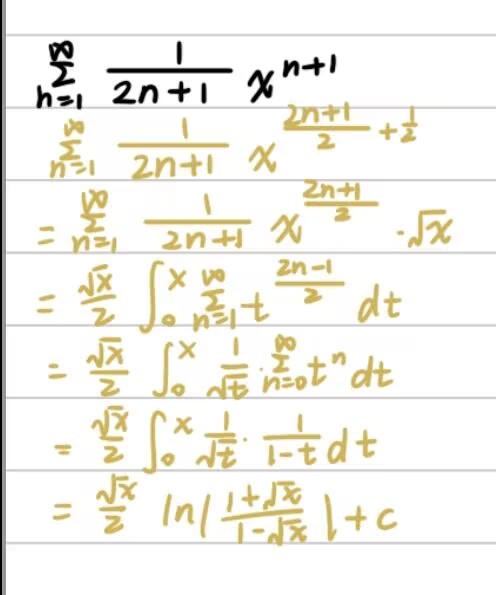 ∞ Σ n=1 1/(2n+1) x^(n+1)
∞ Σ n=1 1/(2n+1) x^((2n+1)/2 + 1/2)
= ∞ Σ n=1 1/(2n+1) x^((2n+1)/2) · √x
= √x/2 ∫₀^x ∞ Σ n=1 t^((2n-1)/2) dt
= √x/2 ∫₀^x 1/√t · ∞ Σ n=0 t^n dt
= √x/2 ∫₀^x 1/√t · 1/(1-t) dt
= √x/2 ln|(1+√x)/(1-√x)| + c